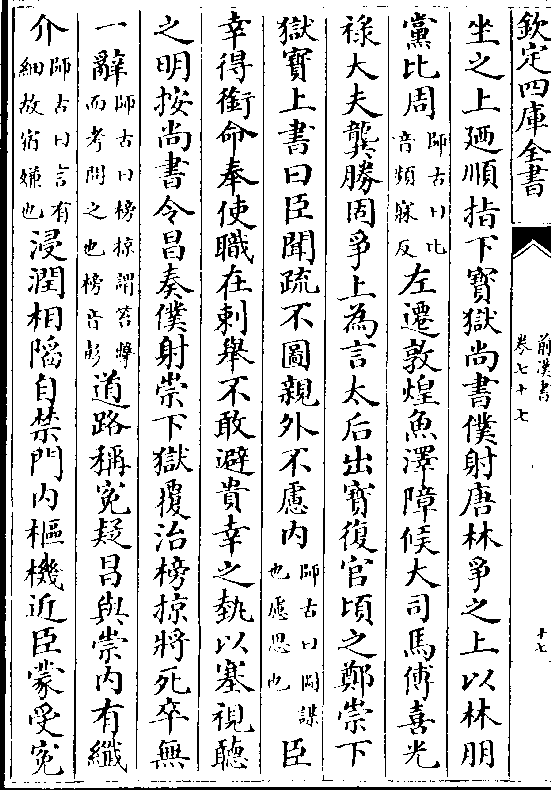 欽定四庫全書
前漢書
卷七十七
十七
坐之上廼順指下寶獄尚書僕射唐林爭之上以林朋
黨比周師古曰比音頻寐反左遷敦煌魚澤障候大司馬傅喜光
祿大夫龔勝固爭上為言太后出寶復官頃之鄭崇下
獄寶上書曰臣聞疏不圖親外不慮内師古曰圖謀也慮思也臣
幸得銜命奉使職在刺舉不敢避貴幸之埶以塞視聽
之明按尚書令昌奏僕射崇下獄覆治榜掠將死卒無
一辭師古曰榜掠謂笞擊而考問之也榜音彭道路稱寃疑昌與崇内有纎
介師古曰言有細故宿嫌也浸潤相䧟自禁門内樞機近臣蒙受寃